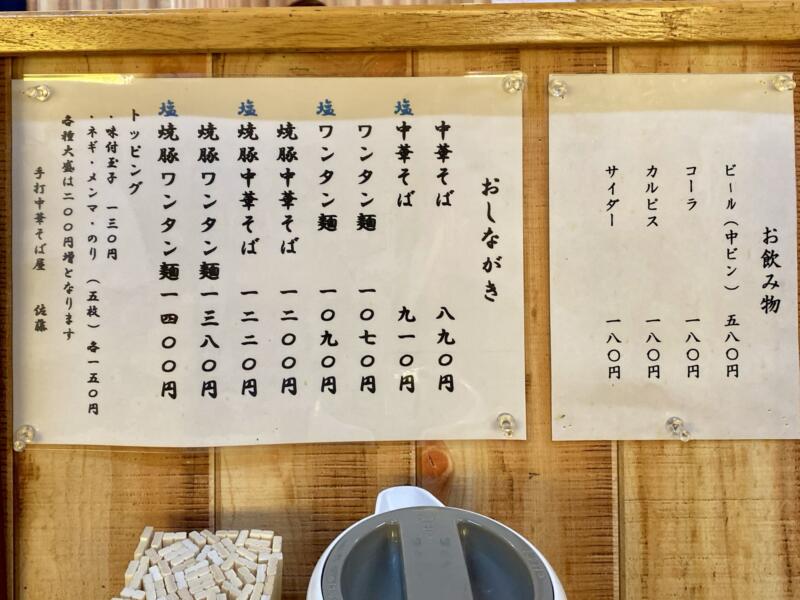 お飲み物
ビール(中ビン) 五八〇円
コーラ 一八〇円
カルピス 一八〇円
サイダー 一八〇円
おしながき
中華そば 八九〇円
塩中華そば 九一〇円
ワンタン麺 一〇七〇円
塩ワンタン麺 一〇九〇円
焼豚中華そば 一二〇〇円
塩焼豚中華そば 一二二〇円
焼豚ワンタン麺 一三八〇円
塩焼豚ワンタン麺 一四〇〇円
トッピング
・味付玉子 一三〇円
・ネギ・メンマ・のり (五枚) 各一五〇円
各種大盛は二〇〇円増となります
手打中華そば屋 佐藤